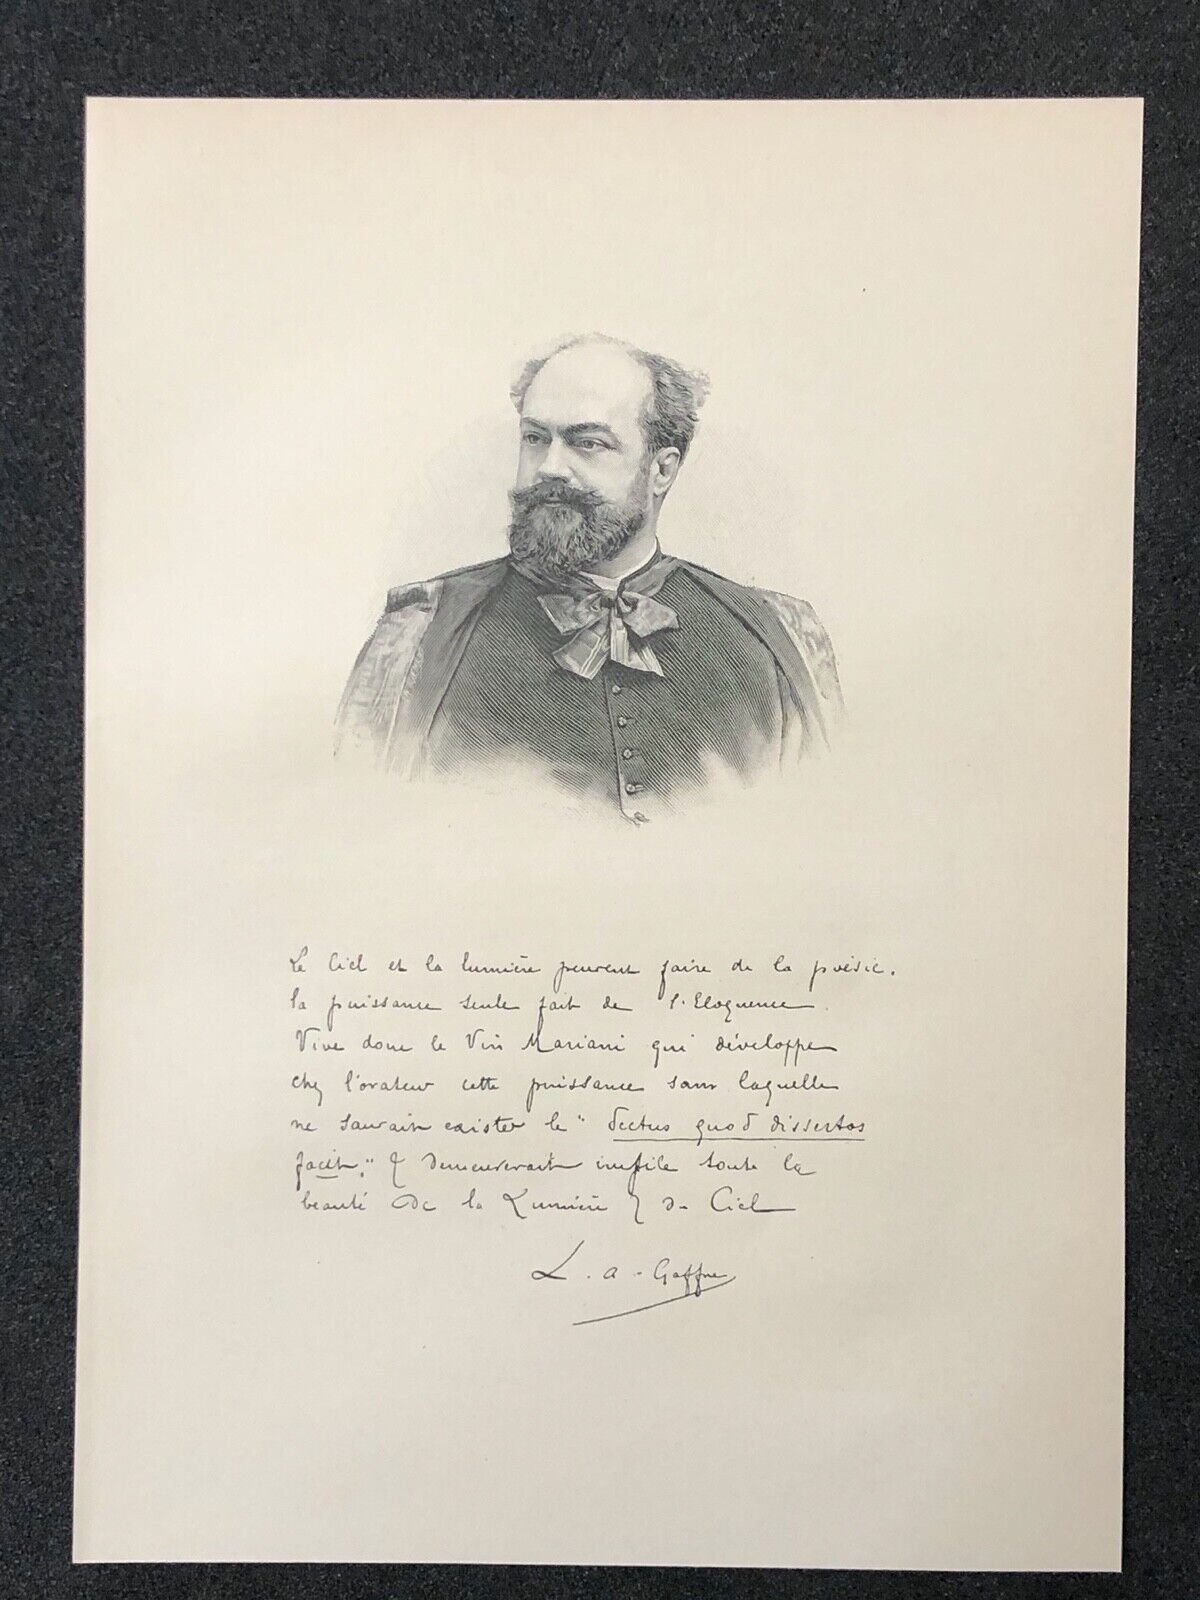 Le Ciel et la lumière peuvent faire de la poésie.
la puissance seule fait de l'Eloquence.
Vive donc le Vin Mariani qui développe
chez l'orateur cette puissance sans laquelle
ne saurait exister le "Pectus quod dissertos
facit," & demeurerait inutile toute la
beauté de la Lumière & du Ciel
L. a. Gaffre